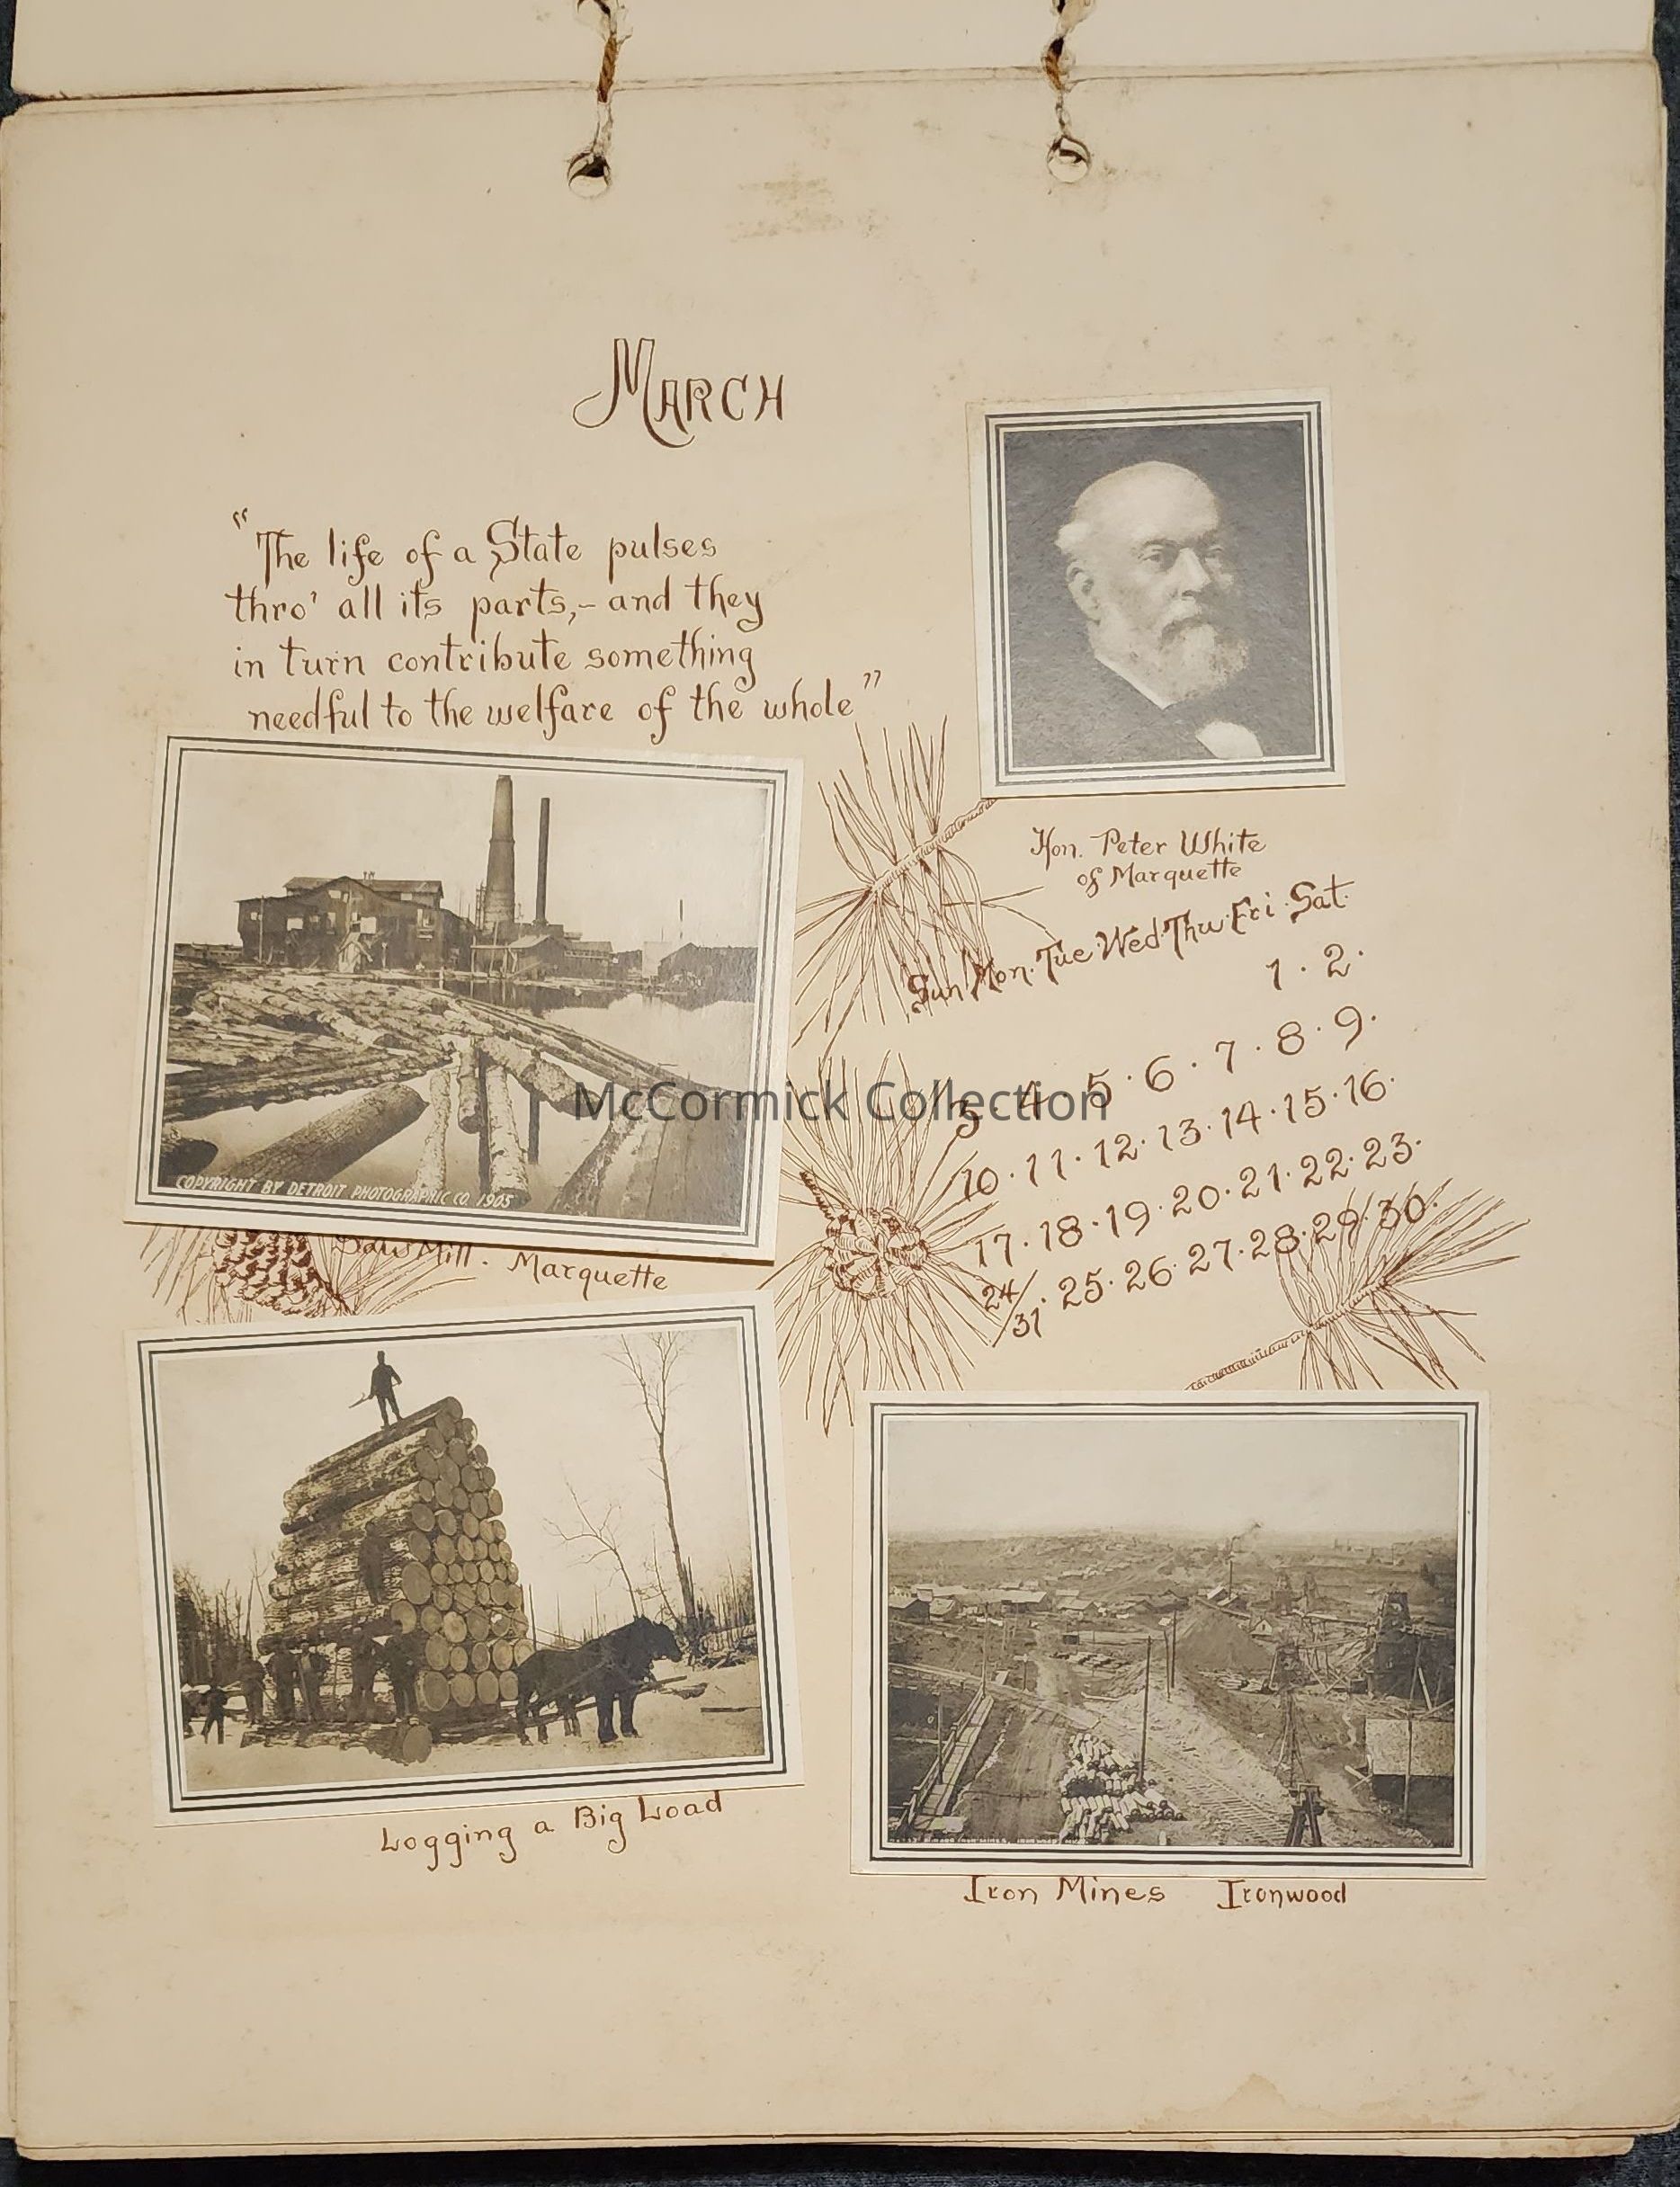 March
"The life of a State pulses
thro' all its parts,- and they
in turn contribute something
needful to the welfare of the whole"
Hon. Peter White
of Marquette
Sun Mon. Tue. Wed. Thu. Fri. Sat.
1 . 2.
3 4 5 . 6 . 7 . 8 . 9.
10 . 11 . 12 . 13 . 14 . 15 . 16.
17 . 18 . 19 . 20 . 21 . 22 . 23.
24/31 . 25 . 26 . 27 . 28 . 29 . 30.
COPYRIGHT BY DETROIT PHOTOGRAPHIC CO. 1905
Saw Mill . Marquette
McCormick Collection
Logging a Big Load
IRON MINES, IRONWOOD, MICH.
Iron Mines Ironwood